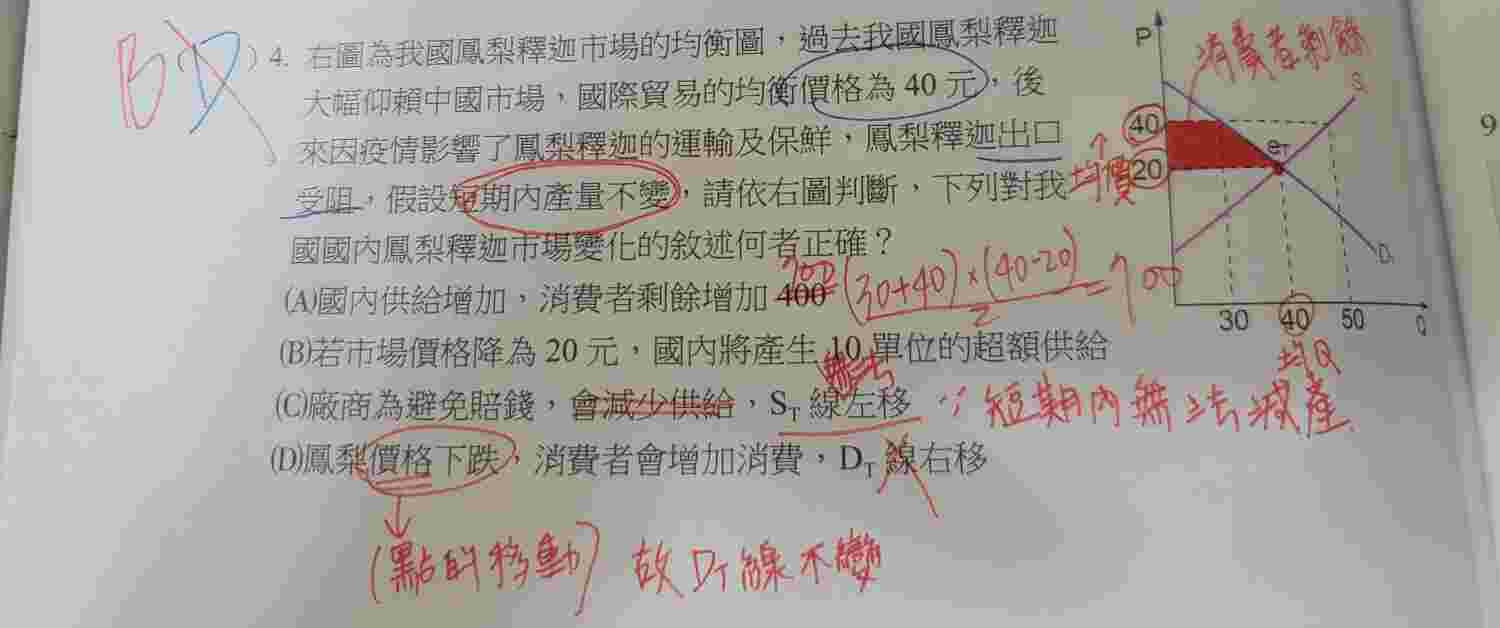 B
(D) 4. 右圖為我國鳳梨釋迦市場的均衡圖，過去我國鳳梨釋迦
大幅仰賴中國市場，國際貿易的均衡價格為 40 元，後
來因疫情影響了鳳梨釋迦的運輸及保鮮，鳳梨釋迦出口
受阻，假設短期內產量不變，請依右圖判斷，下列對我
國國內鳳梨釋迦市場變化的敘述何者正確？
(A)國內供給增加，消費者剩餘增加 400
700 = (30+40)×(40-20) / 2 = 700
(B)若市場價格降為 20 元，國內將產生 10 單位的超額供給
(C)廠商為避免賠錢，會減少供給，ST 線左移
∵短期內無法減產
(D)鳳梨價格下跌，消費者會增加消費，DT 線右移
(點的移動) 故 DT 線不變
P
消費者剩餘
S
40
20
均價
eT
D
30 40 50 Q
均Q
9